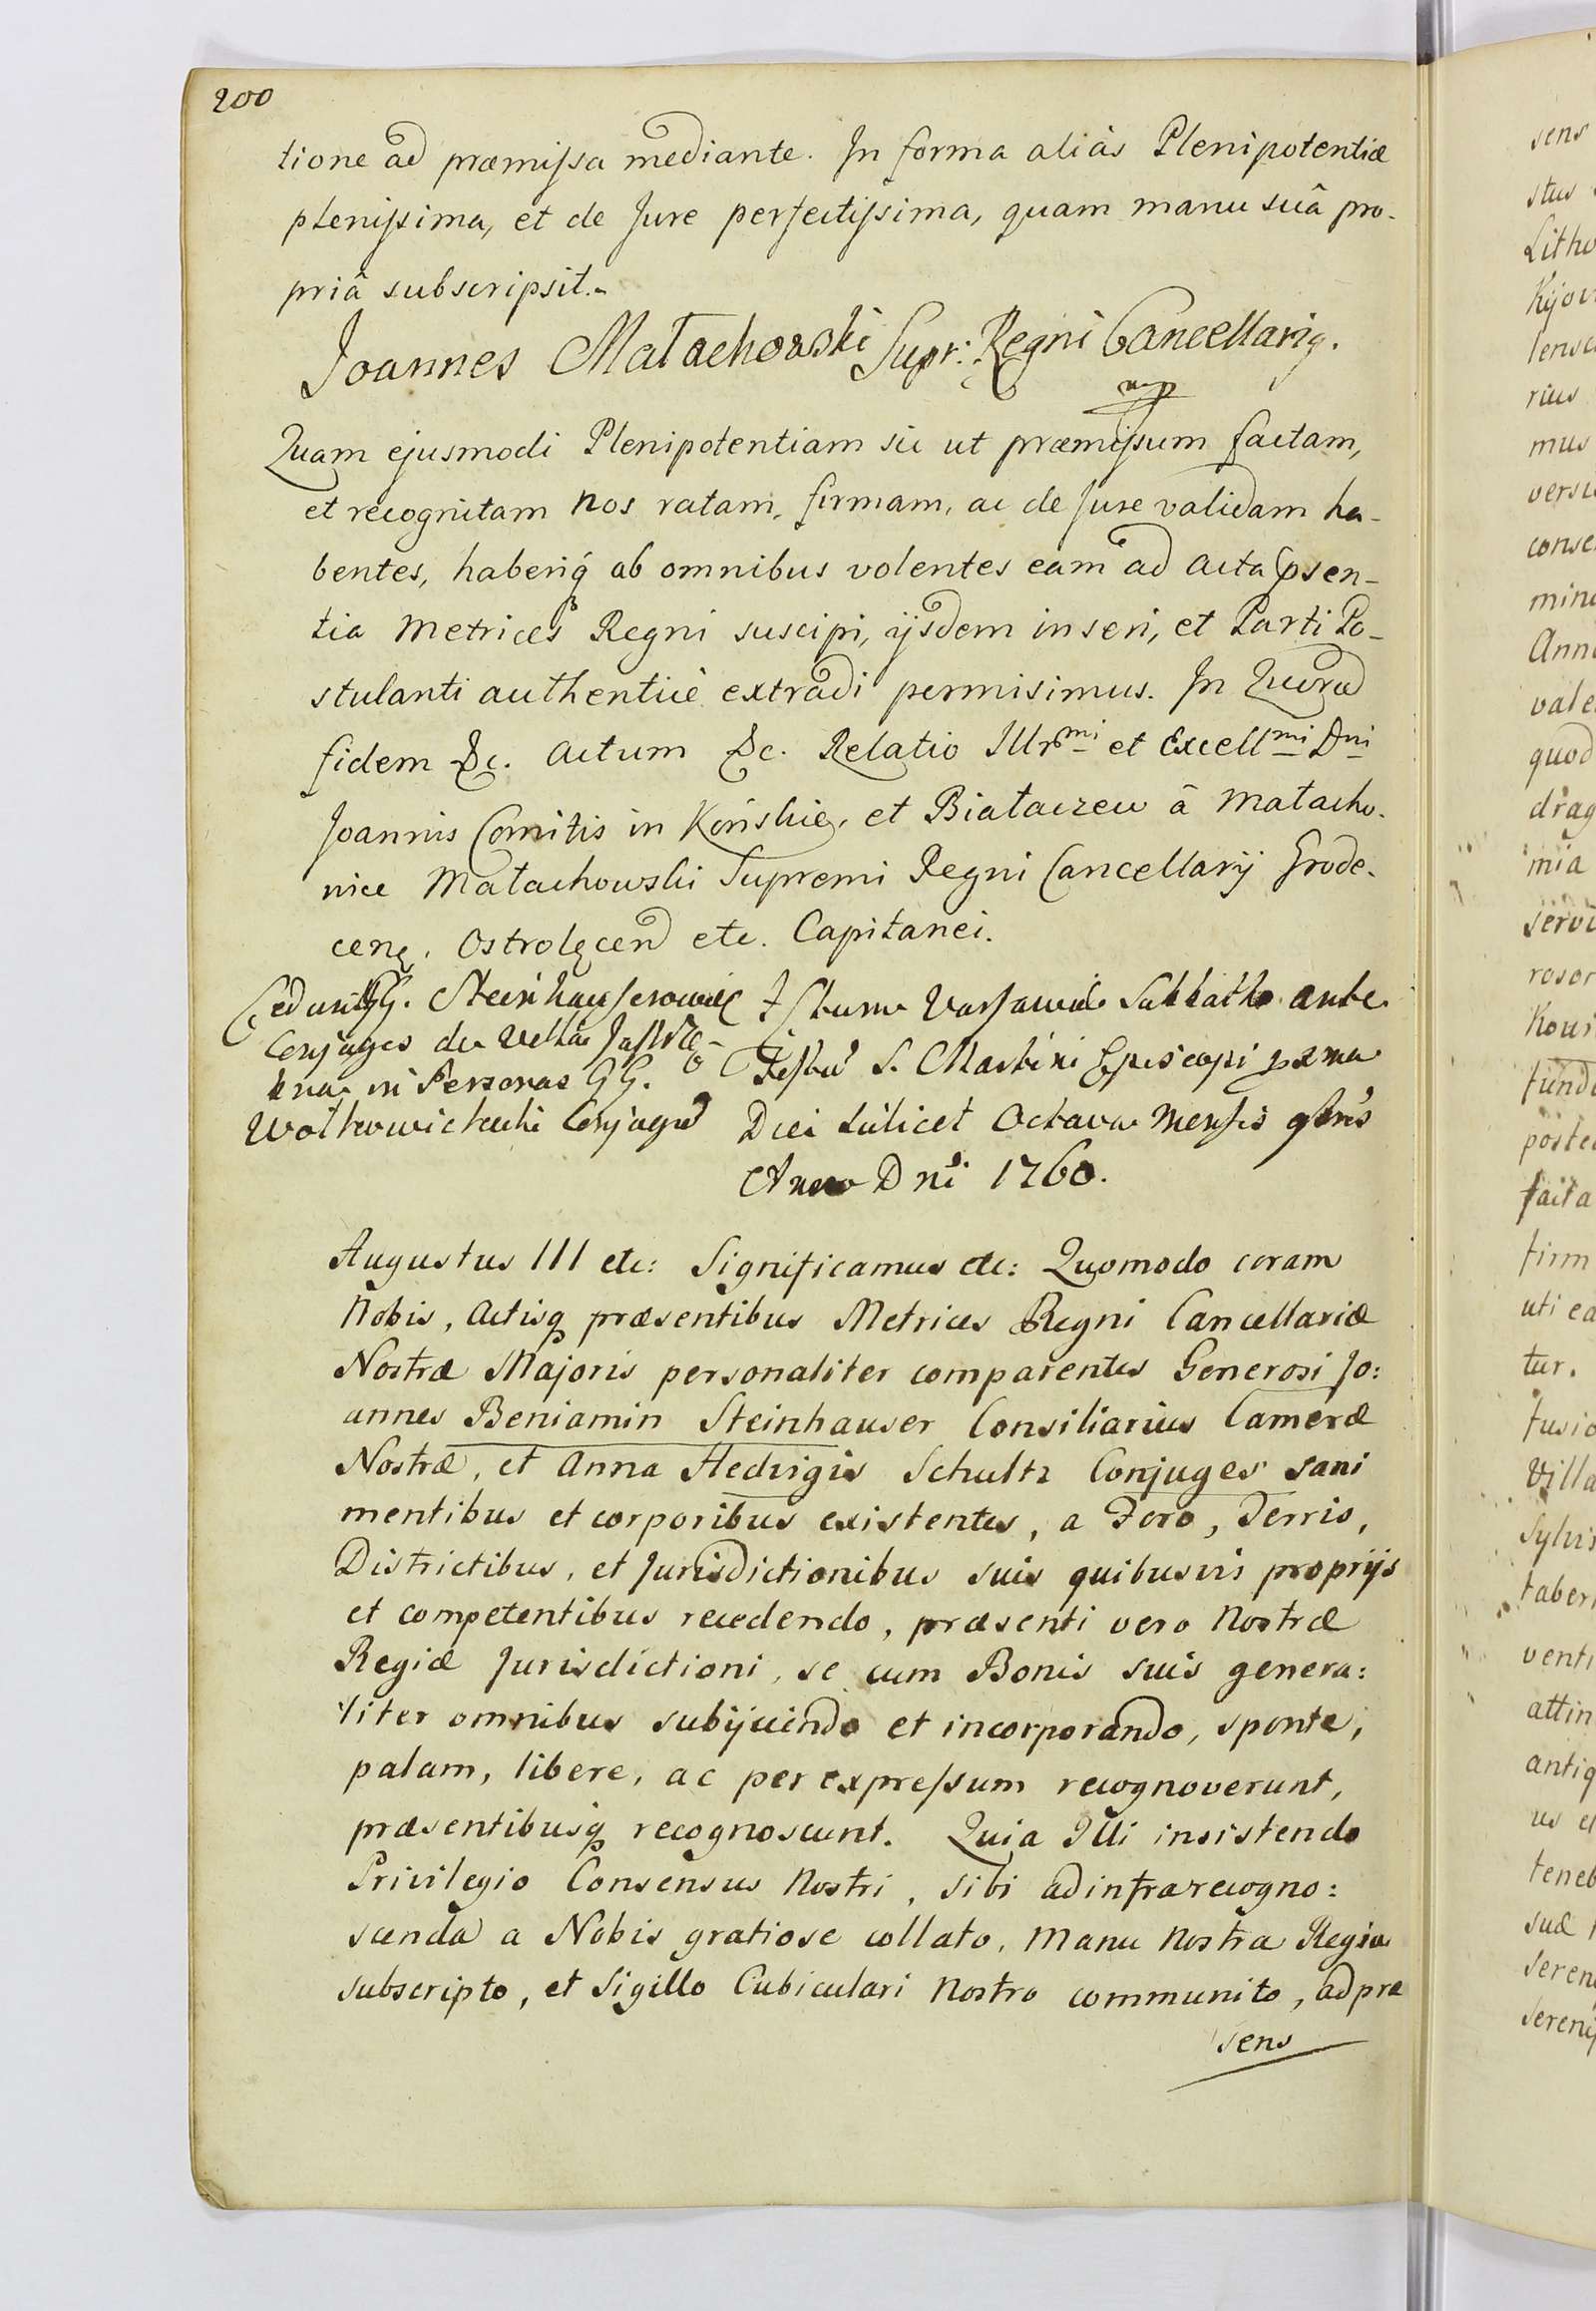 200
tione ad præmissa mediante. In forma aliàs Plenipotentiæ
plenissima, et de Jure perfectissima, quam manu suâ pro-
priâ subscripsit.
Joannes Małachowski Supr: Regni Cancellarig.
mp
Quam ejusmodi Plenipotentiam sic ut præmissum factam,
et recognitam nos ratam, firmam, ac de Jure validam ha-
bentes, haberiq́ ab omnibus volentes eam ad Acta psen-
tia Metrices Regni suscipi, ijsdem inseri, et Parti Po-
stulanti authenticè extradi permisimus. In Quord
fidem &c. Actum &c. Relatio Illrmi et Excellmi Dni
Joannis Comitis in Końskie, et Białaczew â Małacho-
nice Małachowski Supremi Regni Cancellarij Grode-
cen, Ostrolęcen etc. Capitanei.
Cedunt GG. Steinhauserowie
Conjuges de Villa
in Personas GG.
Conjugu
Actum Varsaviæ Sabbatho ante
Festu S. Martini Episcopi
Die scilicet Octava Mensis 9bris
Anno Dni 1760.
Augustus III etc: Significamus etc: Quomodo coram
Nobis, Actisq præsentibus Metrices Regni Cancellariæ
Nostræ Majoris personaliter comparentes Generosi Jo:
annes Beniamin Steinhauser Consiliarius Cameræ
Nostræ, et Anna Hedvigis Schultz Conjuges sani
mentibus et corporibus existentes, a Foro, Terris,
Districtibus, et Jurisdictionibus suis quibusvis proprijs
et competentibus recedendo, præsenti vero Nostræ
Regiæ Jurisdictioni, se cum Bonis suis genera:
liter omnibus subijciendo et incorporando, sponte,
palam, libere, ac per expressum recognoverunt,
præsentibusq recognoscunt. Quia Illi insistendo
Privilegio Consensus Nostri, sibi ad infrarecogno:
scenda a Nobis gratiose collato, Manu Nostra Regia
subscripto, et Sigillo Cubiculari Nostro communito, ad præ
sens
sens
stus
Litho
Kijov
lensc
rius
mus
versu
conse
mino
Anno
vale
quod
drag
mia
servi
rosor
Kowi
fundo
poste
facta
firm
uti ea
tur.
fusio
Villa
Sylvis
taber
venti
attin
antiq
us et
teneb
suæ
seren
sereni